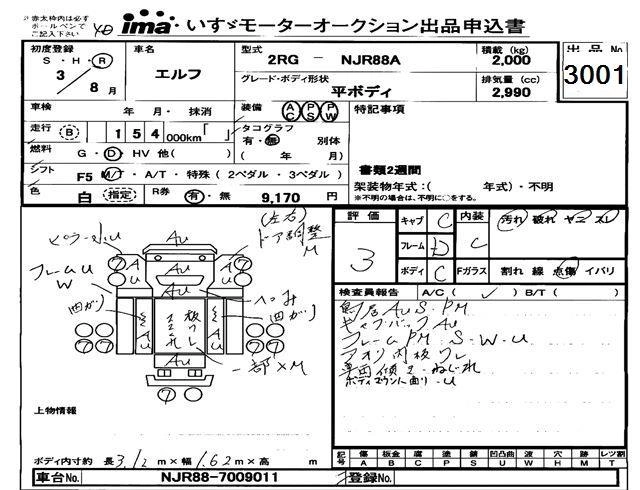 ※赤太枠内は必ず
ボールペンで
ご記入下さい
ima いすゞモーターオークション出品申込書
初度登録
S・H・R
3
8月
車名
エルフ
型式
2RG - NJR88A
積載 (kg)
2,000
グレード・ボディ形状
平ボディ
排気量 (cc)
2,990
出品No
3001
車検 年 月・ 抹消
装備 AC PS PW
特記事項
走行 B 154 000km「 」
タコグラフ
有・無 別体
( 年 月)
燃料 G・D・HV 他( )
書類2週間
シフト F5 M/T・A/T・特殊(2ペダル・3ペダル)
架装物年式:( 年式)・不明
※不明の場合は、不明に○をする。
色 白 指定 R券 有・無 9,170 円
(左右)
ドア調整
M
ピラーS.U
Au
⑦ Au Au ⑦
フレームU
W
凹ガリ
Au
凹ガリ
Au
⑦⑦ ⑦⑦
一部×M
Au
⑦
上物情報
ボディ内寸約 長3.12m×幅1.62m×高 m
評価
3
キャブ C
フレーム D
ボディ C
内装 C
汚れ 破れ ヤニ スレ
Fガラス 割れ 線 点傷 イバリ
検査員報告 A/C( ✓ )B/T( )
AuS.PM
キャブバックAu
フレームPM.S.W.U
アオリ内板ワレ
車両傾き.ねじれ
ボディマウント曲り.U
記号 傷 板金 腐 塗 錆 凹凸曲 波 穴 跡 レツ割
A B C P S U W H M T
車台No. NJR88-7009011
登録No.